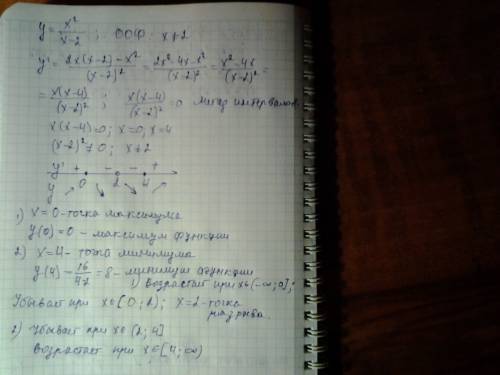 y = x²/(x-2) ; ООФ: x ≠ 2
y' = (2x(x-2) - x²)/(x-2)² = (2x² - 4x - x²)/(x-2)² = (x² - 4x)/(x-2)² =
= x(x-4)/(x-2)² ; x(x-4)/(x-2)² = 0 метод интервалов.
x(x-4) = 0; x=0; x=4
(x-2)² ≠ 0; x ≠ 2
y' + - - +
y ↗ 0 ↘ 2 ↘ 4 ↗
1) x=0 - точка максимума
y(0)=0 - максимум функции
2) x=4 - точка минимума
y(4) = 16/(4-2) = 8 - минимум функции
1) возрастает при x∈(-∞; 0];
Убывает при x∈[0; 2); x=2 - точка
разрыва.
2) Убывает при x∈(2; 4]
возрастает при x∈[4; ∞)